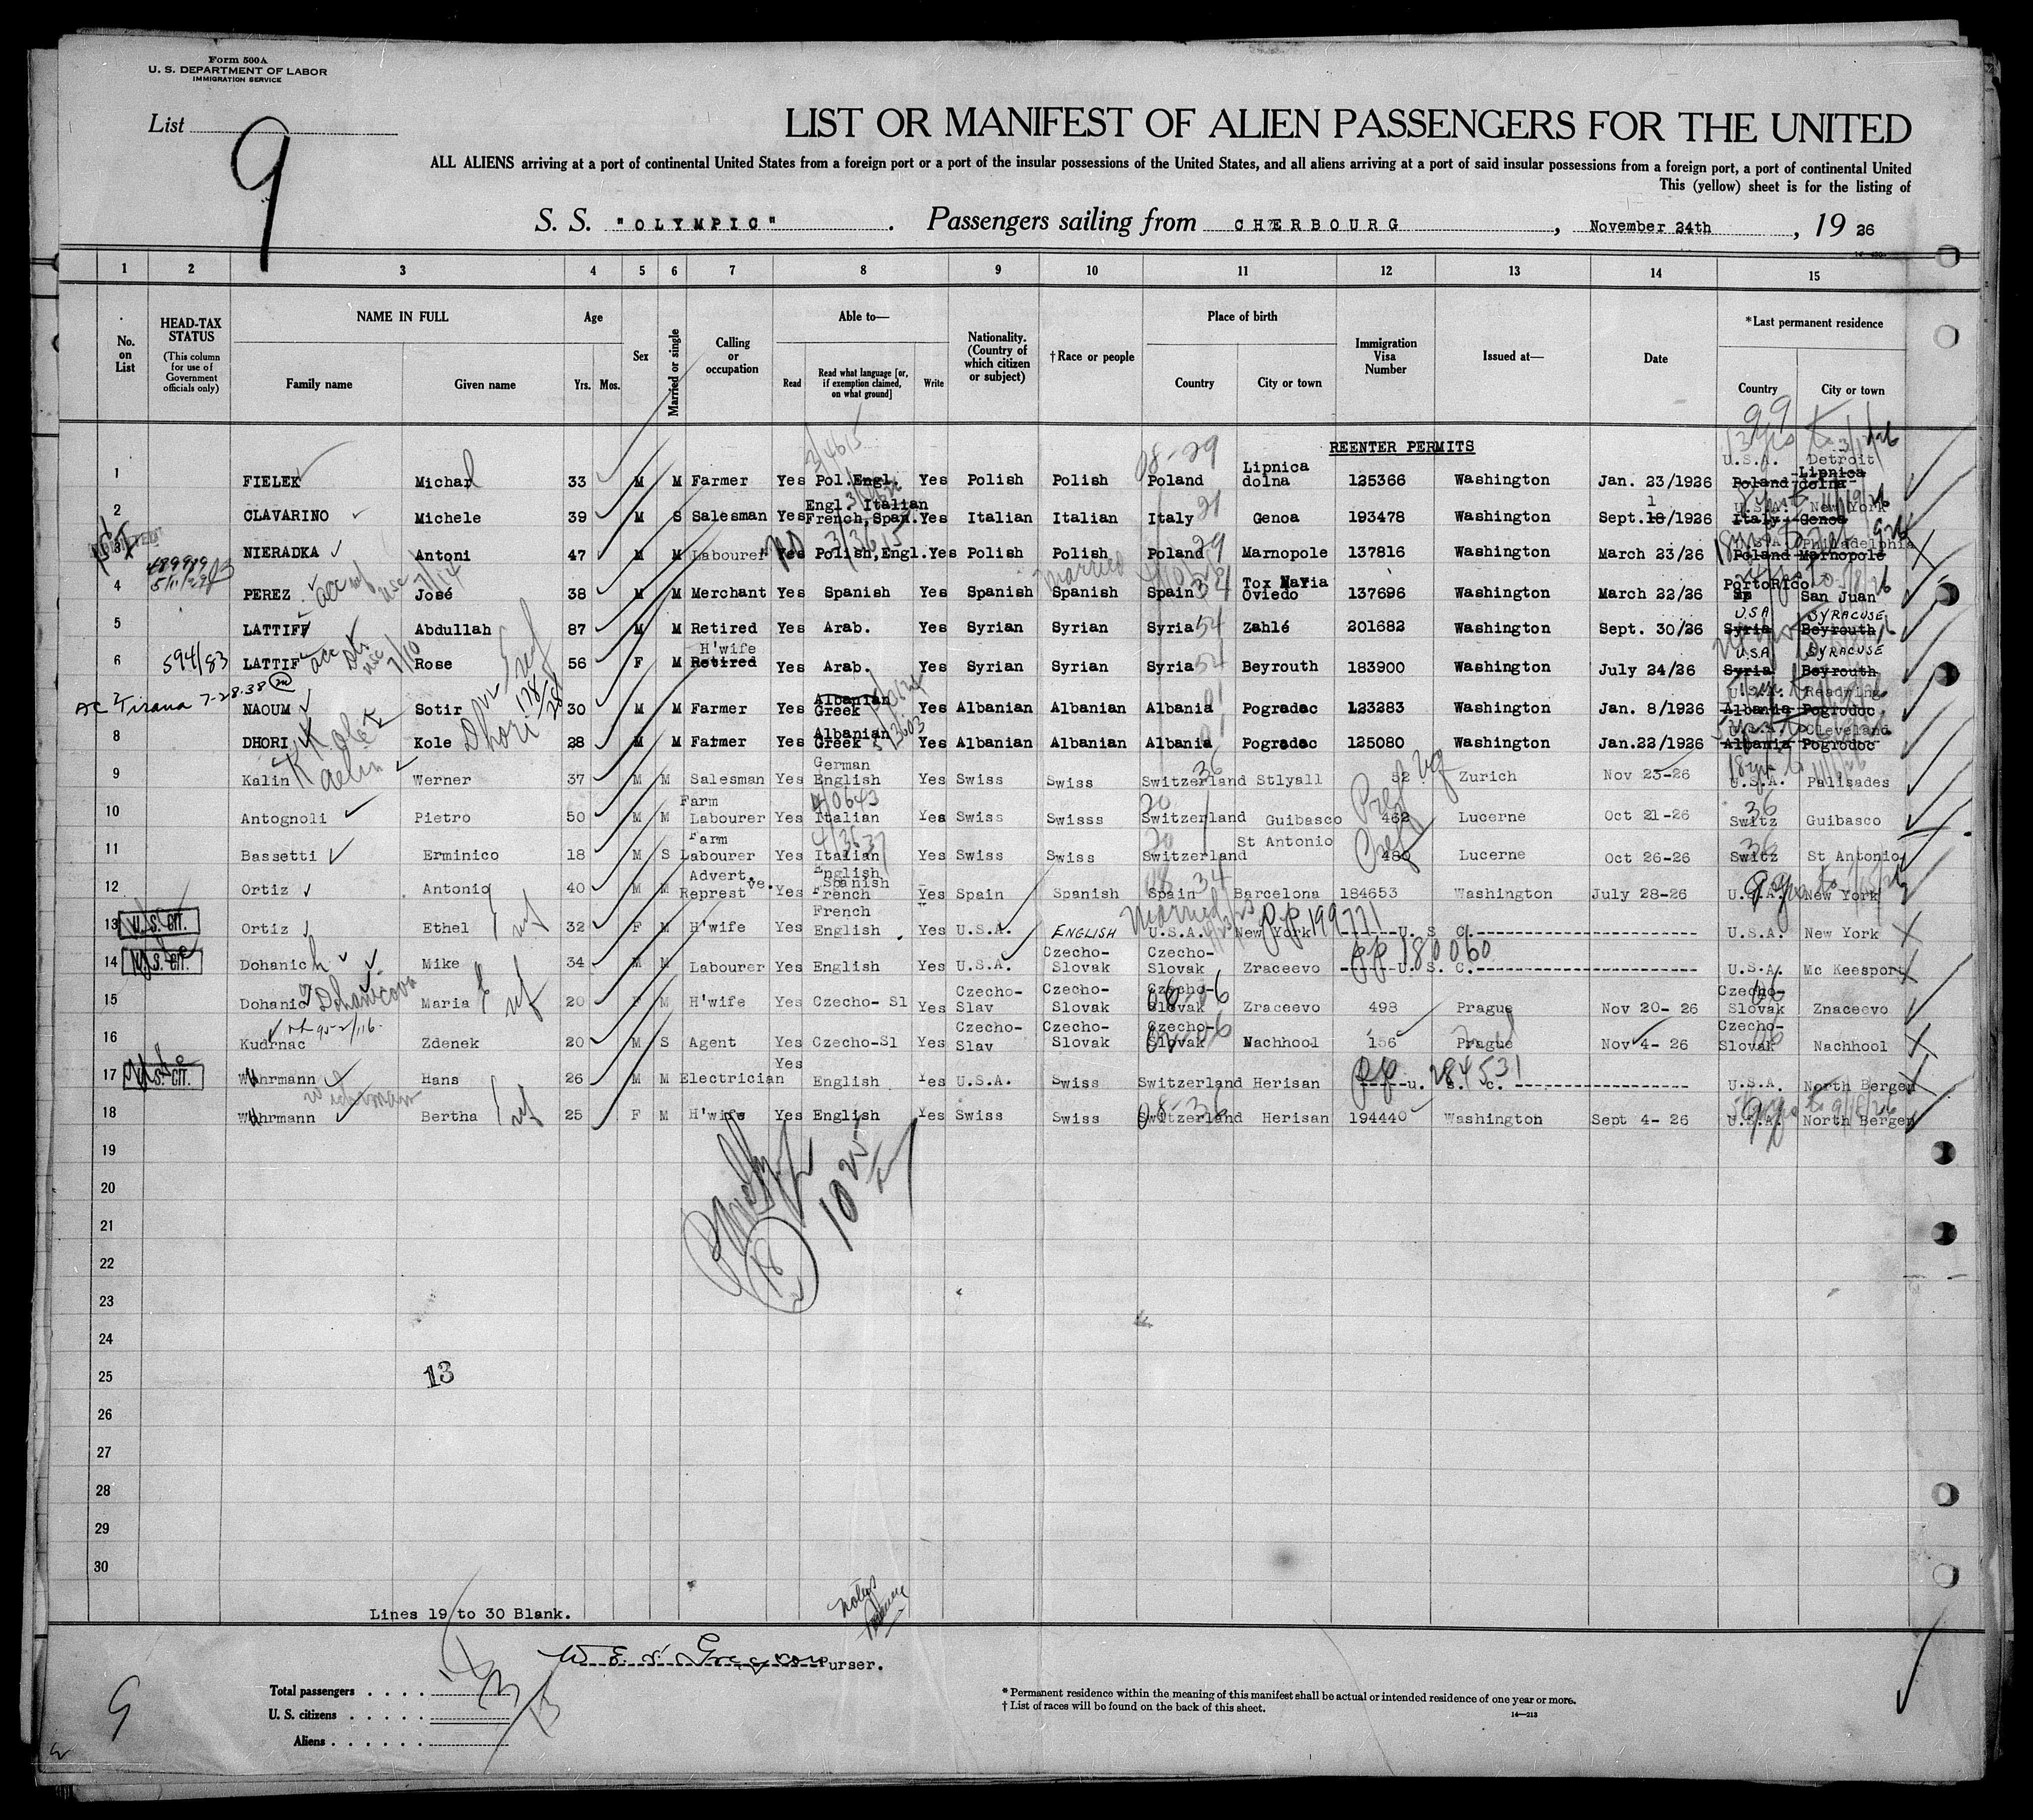 Form 500A
U. S. DEPARTMENT OF LABOR
IMMIGRATION SERVICE
List 9
LIST OR MANIFEST OF ALIEN PASSENGERS FOR THE UNITED
ALL ALIENS arriving at a port of continental United States from a foreign port or a port of the insular possessions of the United States, and all aliens arriving at a port of said insular possessions from a foreign port, a port of continental United
This (yellow) sheet is for the listing of
S. S. "OLYMPIC" . Passengers sailing from CHERBOURG , November 24th , 19 26
1 2 3 4 5 6 7 8 9 10 11 12 13 14 15
No. on List
HEAD-TAX STATUS
(This column for use of Government officials only)
NAME IN FULL
Family name Given name
Age
Yrs. Mos.
Sex
Married or single
Calling or occupation
Able to—
Read
Read what language [or, if exemption claimed, on what ground]
Write
Nationality. (Country of which citizen or subject)
†Race or people
Place of birth
Country City or town
Immigration Visa Number
Issued at—
Date
*Last permanent residence
Country City or town
REENTER PERMITS
1 FIELEK Michal 33 M M Farmer Yes Pol. Engl. Yes Polish Polish Poland Lipnica dolna 125366 Washington Jan. 23/1926 U.S.A. Detroit Poland Lipnica dolna
2 CLAVARINO Michele 39 M S Salesman Yes Engl. Italian French, Span. Yes Italian Italian Italy Genoa 193478 Washington Sept. 18/1926 1 U.S.A. New York Italy Genoa
3 NIERADKA Antoni 47 M M Labourer Yes Polish, Engl. Yes Polish Polish Poland Marnopole 137816 Washington March 23/26 U.S.A. Philadelphia Poland Marnopole
4 PEREZ José 38 M M Merchant Yes Spanish Yes Spanish Spanish Spain Oviedo 137696 Washington March 22/26 Porto Rico San Juan
5 LATTIFF Abdullah 87 M M Retired Yes Arab. Yes Syrian Syrian Syria Zahlé 201682 Washington Sept. 30/26 USA SYRACUSE Syria Beyrouth
6 594/83 LATTIF Rose 56 F M H'wife Retired Yes Arab. Yes Syrian Syrian Syria Beyrouth 183900 Washington July 24/26 USA SYRACUSE Syria Beyrouth
AC Tirana 7-28-38
7 NAOUM Sotir 30 M M Farmer Yes Albanian Greek Yes Albanian Albanian Albania Pogradec 123283 Washington Jan. 8/1926 U.S.A. Reading Albania Pogrodoc
8 DHORI Kole 28 M M Farmer Yes Albanian Greek Yes Albanian Albanian Albania Pogradec 125080 Washington Jan. 22/1926 U.S.A. Cleveland Albania Pogrodoc
9 Kalin Kaelin Werner 37 M M Salesman Yes German English Yes Swiss Swiss Switzerland Stlyall 52 Zurich Nov 23-26 U.S.A. Palisades
10 Antognoli Pietro 50 M M Farm Labourer Yes Italian Yes Swiss Swisss Switzerland Guibasco 462 Lucerne Oct 21-26 Switz Guibasco
11 Bassetti Erminico 18 M S Farm Labourer Yes Italian Yes Swiss Swiss Switzerland St Antonio 480 Lucerne Oct 26-26 Switz St Antonio
12 Ortiz Antonio 40 M M Advert. Represtve. Yes English Spanish French Yes Spain Spanish Spain Barcelona 184653 Washington July 28-26 U.S.A. New York
13 U.S. CIT. Ortiz Ethel 32 F M H'wife Yes French English Yes U.S.A. ENGLISH U.S.A. New York U. S. C. pp 199771 U.S.A. New York
14 U.S. CIT. Dohanich Mike 34 M M Labourer Yes English Yes U.S.A. Czecho-Slovak Czecho-Slovak Zraceevo U. S. C. pp 180060 U.S.A. Mc Keesport
15 Dohanic Dohanicova Maria 20 F M H'wife Yes Czecho- Sl Yes Czecho-Slav Czecho-Slovak Czecho-Slovak Zraceevo 498 Prague Nov 20- 26 Czecho-Slovak Znaceevo
16 Kudrnac Zdenek 20 M S Agent Yes Czecho-Sl Yes Czecho-Slav Czecho-Slovak Czecho-Slovak Nachhool 156 Prague Nov 4- 26 Czecho-Slovak Nachhool
17 U.S. CIT. Wuhrmann Hans 26 M M Electrician Yes English Yes U.S.A. Swiss Switzerland Herisan U. S. C. pp 284531 U.S.A. North Bergen
18 Wuhrmann Bertha 25 F M H'wife Yes English Yes Swiss Swiss Switzerland Herisan 194440 Washington Sept 4- 26 U.S.A. North Bergen
19
20
21
22
23
24
25 13
26
27
28
29
30
Lines 19 to 30 Blank.
Purser.
Total passengers
U. S. citizens
Aliens
9
* Permanent residence within the meaning of this manifest shall be actual or intended residence of one year or more.
† List of races will be found on the back of this sheet.
14—213